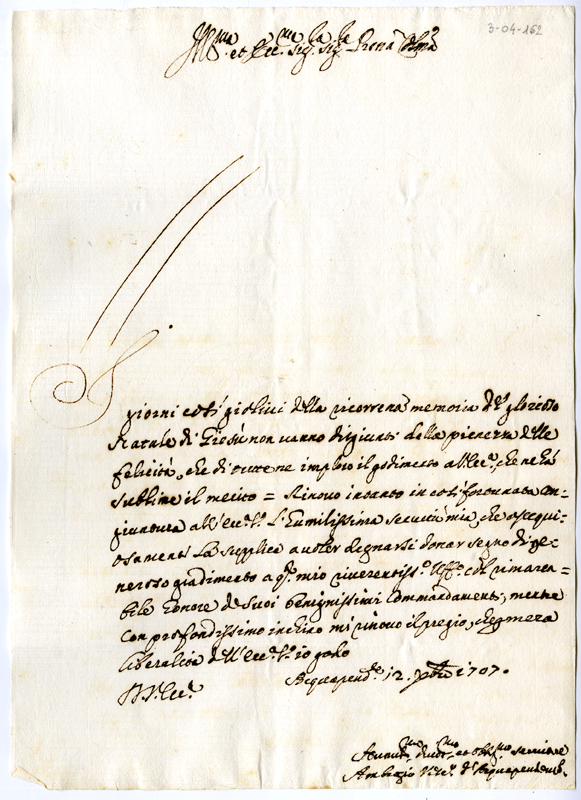 3-04-152
Ill.ma et Ecc.ma Sig.ra Sig.ra Prona Col.ma
I
giorni così giolivi della ricorrena memoria del glorioso
Natale di Giesù non vanno disgiunti dalla pienezza delle
felicità, che di tutte ne imploro il godimento all'Ecc.a che ne hà
sublime il merito = Rinovo intanto in così fortunata con-
giuntura all'Ecc.a V.a l'humilissima servitù mia, che ossequi-
osamente La supplica a voler degnarsi donar segno di ge-
neroso gradimento a q.o mio riverentiss.o Uff.o col rimarca-
bile honore de Suoi benignissimi Commandamenti, mentre
con profondissimo inchino mi rinovo il pregio, che p mera
liberalità dell'Ecc.a V.a io godo
Di V. Ecc.a
Acquapend.e 12 Xbre 1707.
Humil.mo Divot.mo et Obb.mo servitore
Ambrogio Vesc.o d'Acquapendente